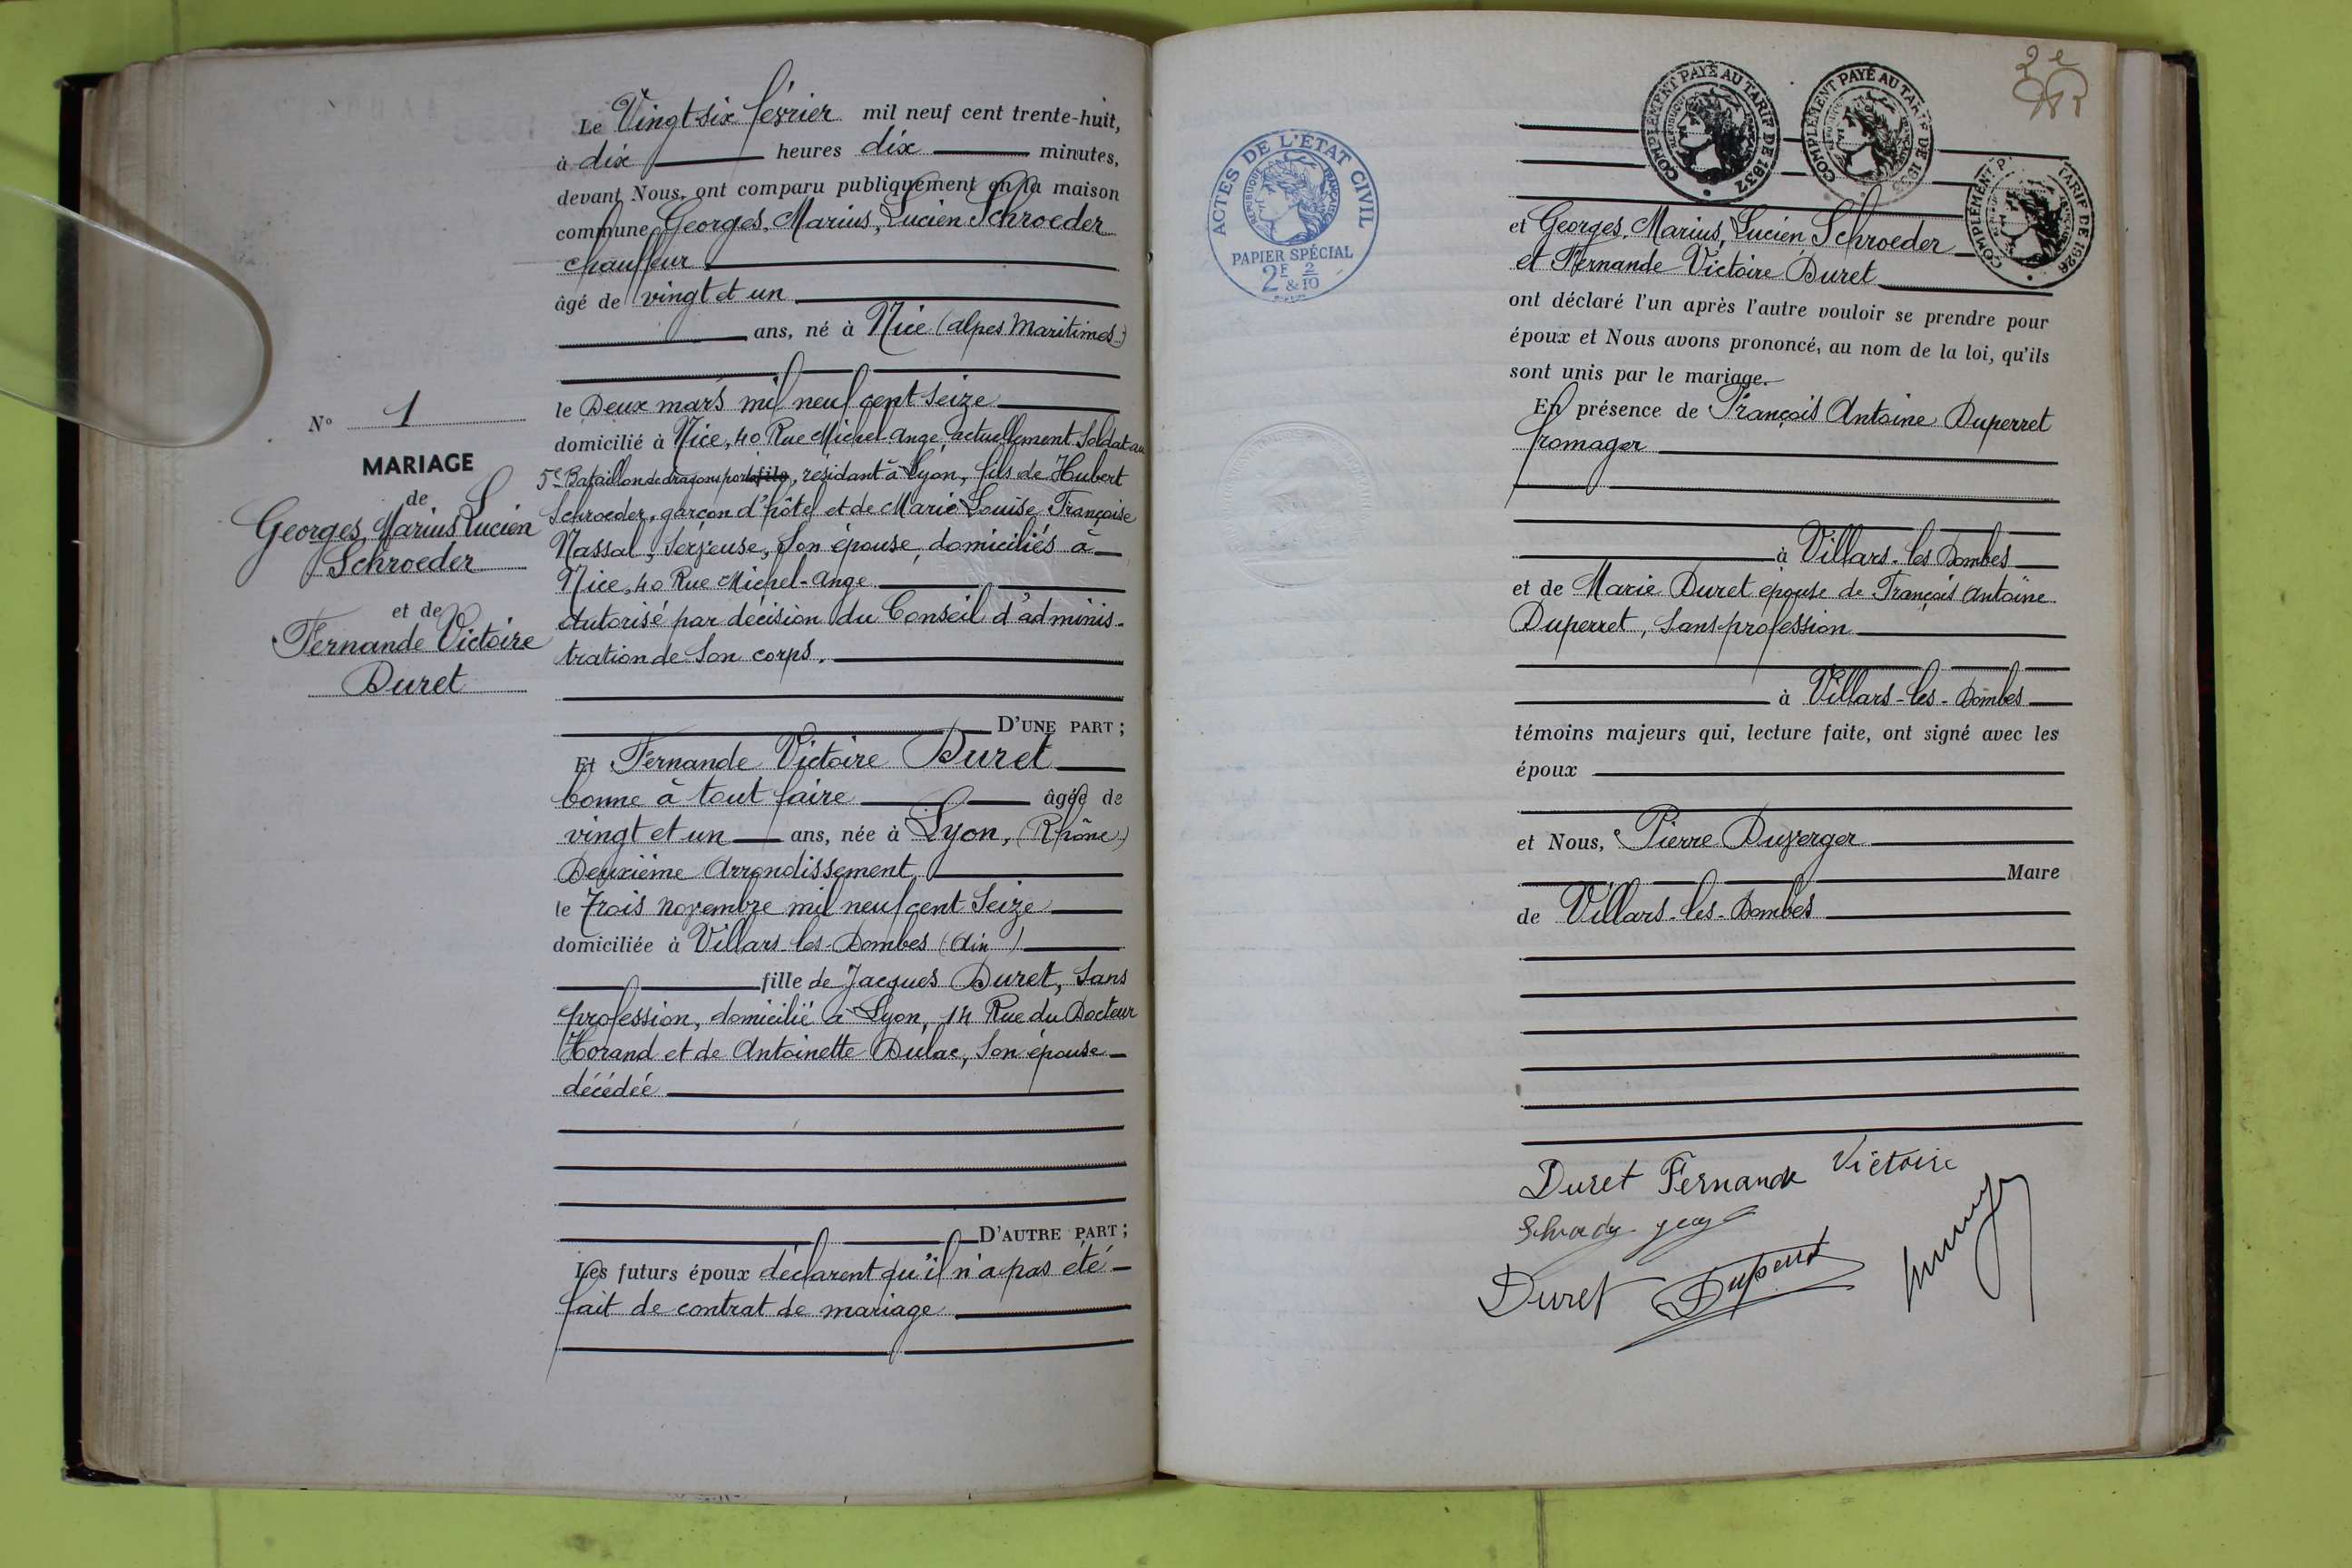 Le Vingt six février mil neuf cent trente-huit,
à dix heures dix minutes,
devant Nous, ont comparu publiquement en la maison
commune Georges, Marius, Lucien Schroeder
chauffeur
âgé de vingt et un
ans, né à Nice (alpes Maritimes)
le Deux mars mil neuf cent seize
domicilié à Nice, 40 Rue Michel-Ange, actuellement Soldat au
5e Bataillon de dragons portés, résidant à Lyon, fils de Hubert
Schroeder, garçon d'hôtel et de Marie Louise Françoise
Nassal, Serveuse, Son épouse, domiciliés à
Nice, 40 Rue Michel-Ange
Autorisé par décision du Conseil d'adminis-
tration de Son corps.
D'UNE PART;
N° 1
MARIAGE
de
Georges, Marius Lucien
Schroeder
et de
Fernande Victoire
Duret
Et Fernande Victoire Duret
bonne à tout faire âgée de
vingt et un ans, née à Lyon, (Rhône)
Deuxième Arrondissement
le Trois novembre mil neuf cent Seize
domiciliée à Villars-les-Dombes (Ain)
fille de Jacques Duret, Sans
profession, domicilié à Lyon, 14 Rue du Docteur
Horand et de Antoinette Dulac, Son épouse
décédée
D'AUTRE PART;
Les futurs époux déclarent qu'il n'a pas été
fait de contrat de mariage
2e
COMPLÉMENT PAYÉ AU TARIF DE 1937
COMPLÉMENT PAYÉ AU TARIF DE
COMPLÉMENT P TARIF DE 1926
ACTES DE L'ÉTAT CIVIL
RÉPUBLIQUE FRANÇAISE
PAPIER SPÉCIAL
2F & 2/10
et Georges, Marius, Lucien Schroeder
et Fernande Victoire Duret
ont déclaré l'un après l'autre vouloir se prendre pour
époux et Nous avons prononcé, au nom de la loi, qu'ils
sont unis par le mariage.
En présence de François Antoine Duperret
fromager
à Villars-les-Dombes
et de Marie Duret épouse de François Antoine
Duperret, Sans profession
à Villars-les-Dombes
témoins majeurs qui, lecture faite, ont signé avec les
époux
et Nous, Pierre Duverger
Maire
de Villars-les-Dombes
Duret Fernande Victoire
Duret Duperret